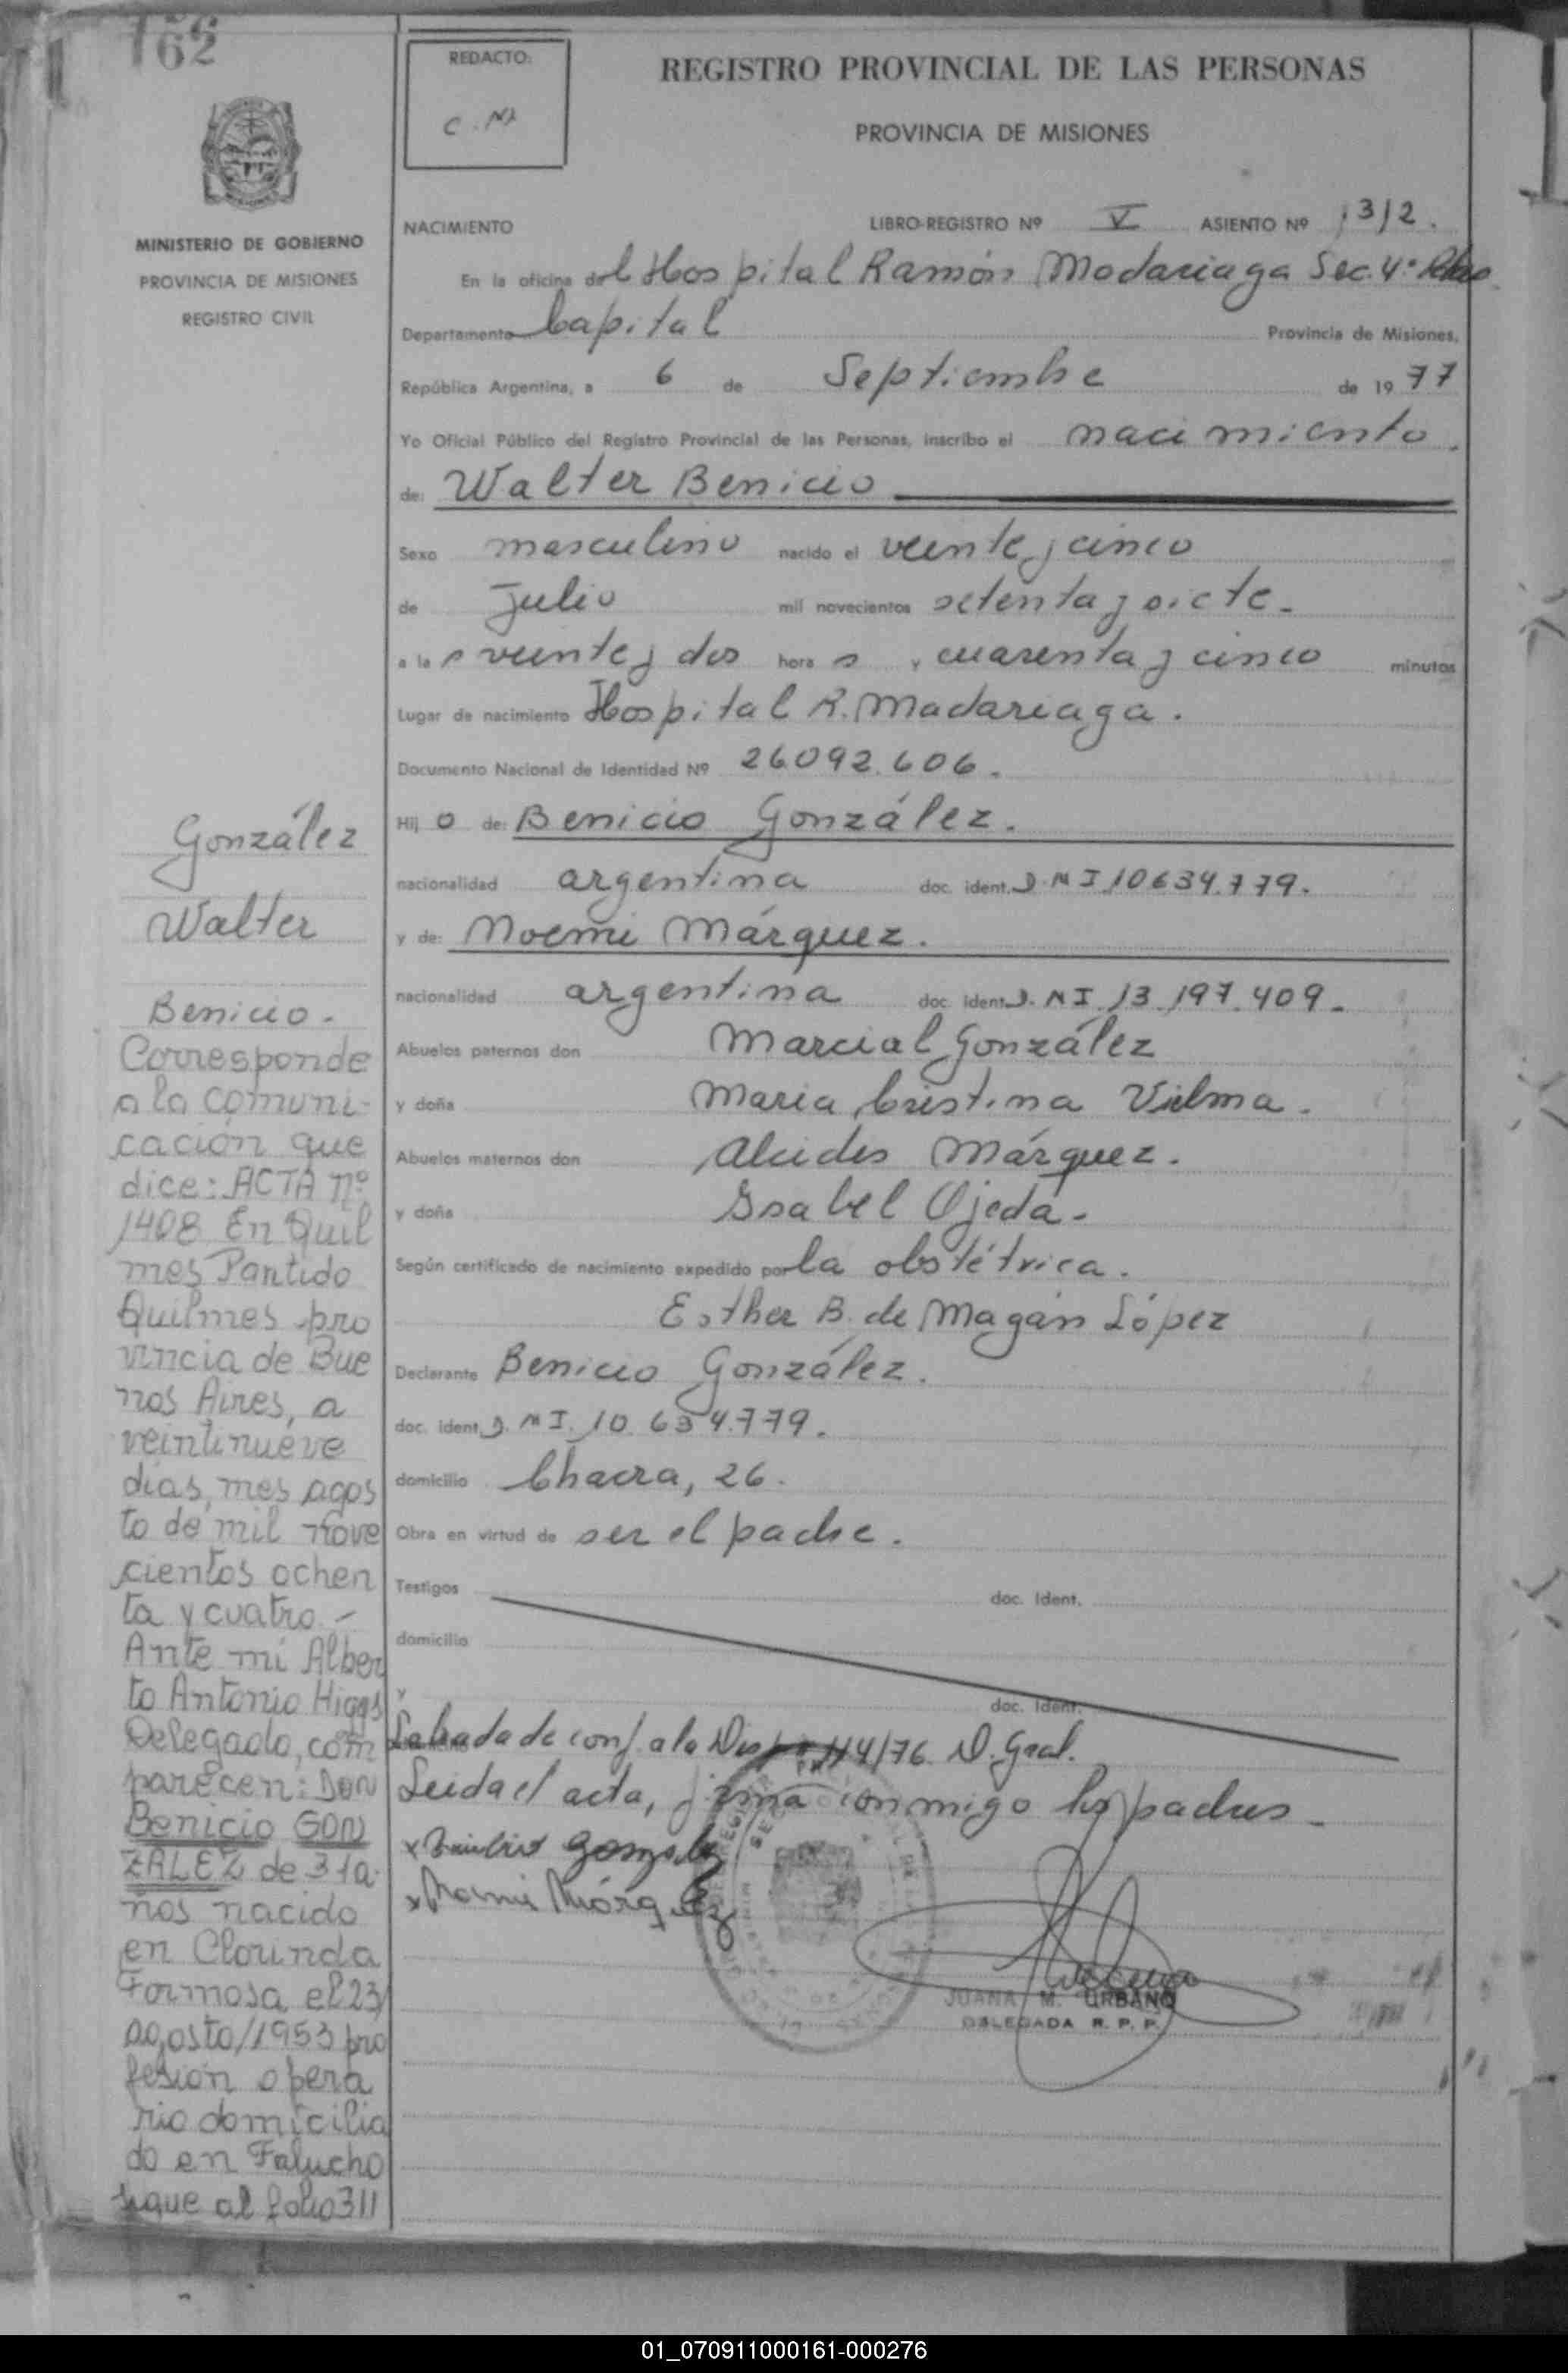 162
REDACTO:
C. M
REGISTRO PROVINCIAL DE LAS PERSONAS
PROVINCIA DE MISIONES
MINISTERIO DE GOBIERNO
PROVINCIA DE MISIONES
REGISTRO CIVIL
NACIMIENTO LIBRO-REGISTRO Nº V ASIENTO Nº 1312.
En la oficina del Hospital Ramón Madariaga Sec. 4º
Departamento Capital Provincia de Misiones,
República Argentina, a 6 de Septiembre de 1977
Yo Oficial Público del Registro Provincial de las Personas, inscribo el nacimiento
de: Walter Benicio
Sexo masculino nacido el veinte y cinco
de Julio mil novecientos setenta y siete.
a las veinte y dos horas y cuarenta y cinco minutos
Lugar de nacimiento Hospital R. Madariaga.
Documento Nacional de Identidad Nº 26.092.606.
Hijo de: Benicio González.
nacionalidad argentina doc. ident. D.N I 10634.779.
y de: Noemi Márquez.
nacionalidad argentina doc. ident. D.N I. 13.197.409.
Abuelos paternos don Marcial González
y doña Maria Cristina Vilma.
Abuelos maternos don Alcides Márquez.
y doña Isabel Ojeda.
Según certificado de nacimiento expedido por la obstétrica.
Esther B. de Magan López
Declarante Benicio González.
doc. ident. D. N I. 10.634.779.
domicilio Chacra, 26.
Obra en virtud de ser el padre.
Testigos doc. Ident.
domicilio
y doc. Ident.
Labrada de conf. a la Disp. 114/76 D. Gral.
Leida el acta, firma conmigo los padres
x Benicio Gonzalez
x Noemi Márquez
JUANA M. URBANO
DELEGADA R. P. P.
González
Walter
Benicio.
Corresponde
a la comuni-
cación que
dice: ACTA nº
1408 En Quil
mes Partido
Quilmes pro
vincia de Bue
nos Aires, a
veintinueve
dias, mes agos
to de mil nove
cientos ochen
ta y cuatro.-
Ante mi Alber
to Antonio Higgs
Delegado, com
parecen: Don
Benicio GON
ZALEZ de 31 a-
ños nacido
en Clorinda
Formosa el 23/
agosto/1953 pro
fesión opera
rio domicilia
do en Falucho
sigue al folio 311
01_070911000161-000276